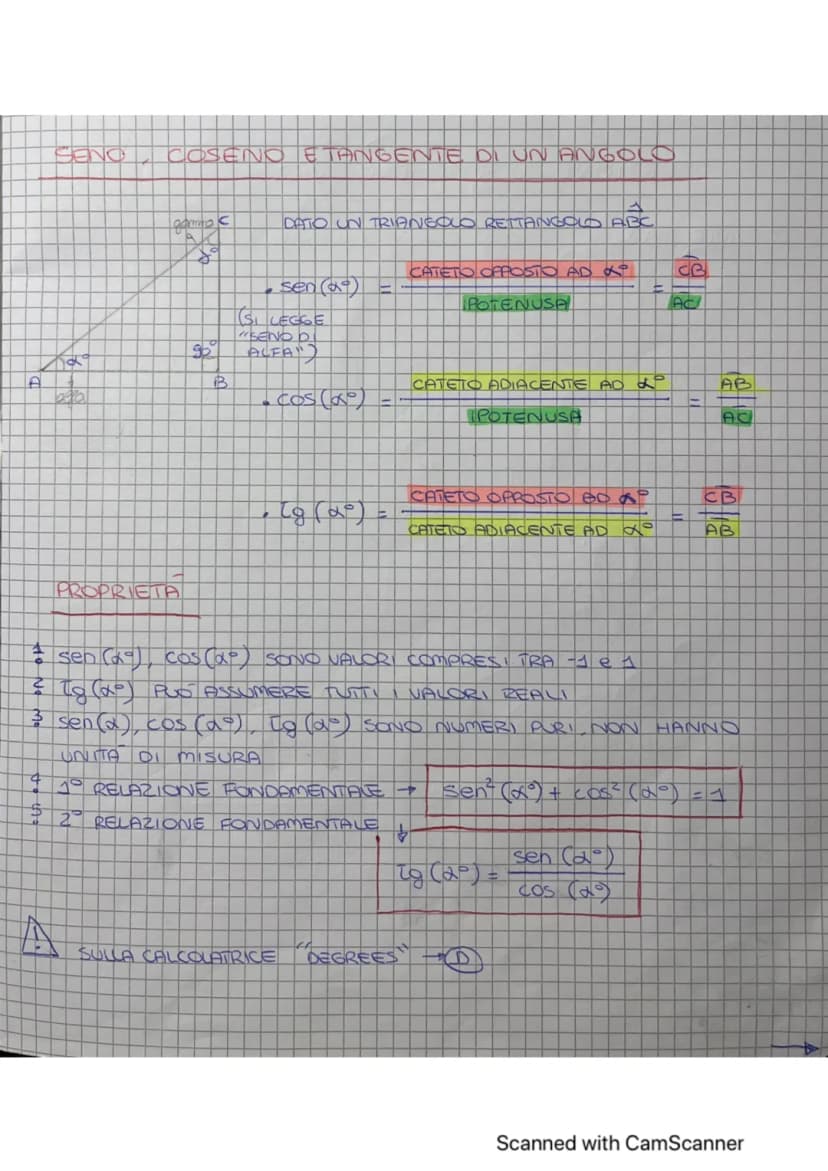 SENO, COSENO E TANGENTE DI UN ANGOLO
gamma C
DATO UN TRIANGOLO RETTANGOLO ABC
γ°
• sen(α°) = CATETO OPPOSTO AD α° / IPOTENUSA = CB / AC
(SI LEGGE
"SENO DI
ALFA")
90°
α°
A
B
alfa
• cos(α°) = CATETO ADIACENTE AD α° / IPOTENUSA = AB / AC
• tg(α°) = CATETO OPPOSTO AD α° / CATETO ADIACENTE AD α° = CB / AB
PROPRIETÀ
1. sen(α°), cos(α°) SONO VALORI COMPRESI TRA -1 e 1
2. tg(α°) PUÒ ASSUMERE TUTTI I VALORI REALI
3. sen(α), cos(α°), tg(α°) SONO NUMERI PURI, NON HANNO
UNITÀ DI MISURA
4. 1° RELAZIONE FONDAMENTALE → sen²(α°) + cos²(α°) = 1
5. 2° RELAZIONE FONDAMENTALE ↓
tg(α°) = sen(α°) / cos(α°)
! SULLA CALCOLATRICE "DEGREES" → D
Scanned with CamScanner